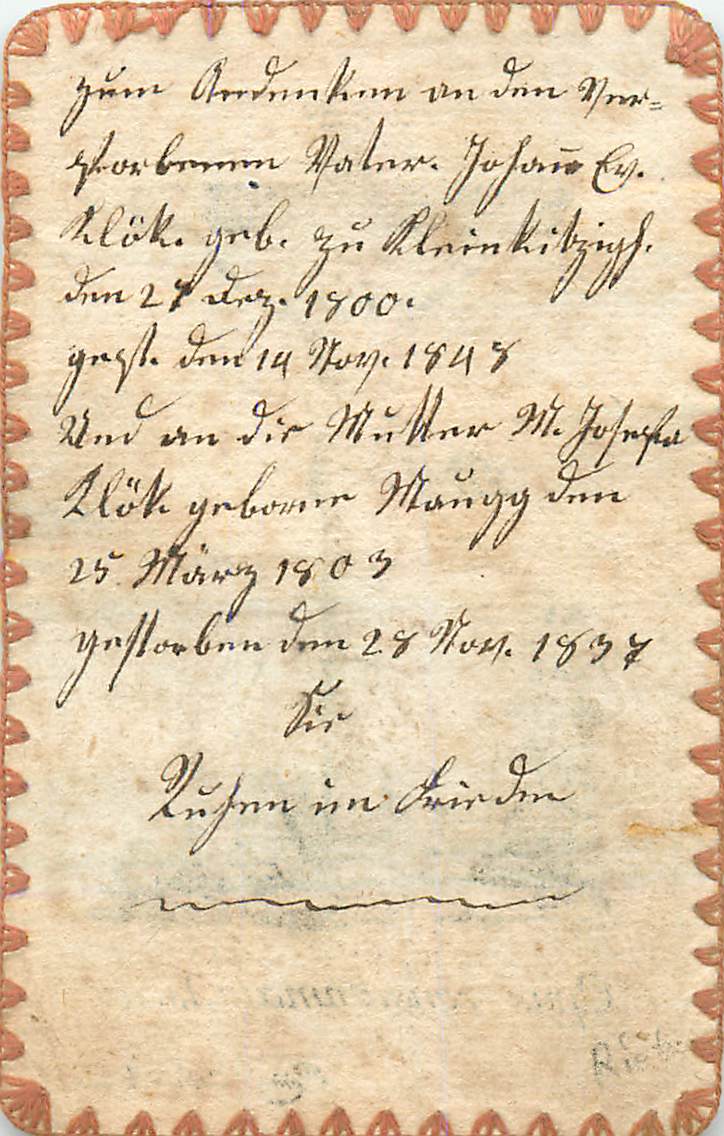 zum Andenken an den Ver=
storbenen Vater. Johan̄ Ev.
Klök. geb. zu Kleinkitzigh.
den 27 Dez. 1800.
gest. den 14 Nov. 1848
Und an die Mutter M. Josepha
Klök geborne Maugg den
25. März 1803
gestorben den 28 Nov. 1837
Sie
Ruhen im Frieden